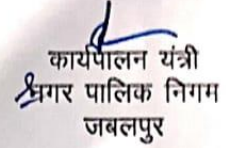 कार्यपालन यंत्री
नगर पालिक निगम
जबलपुर